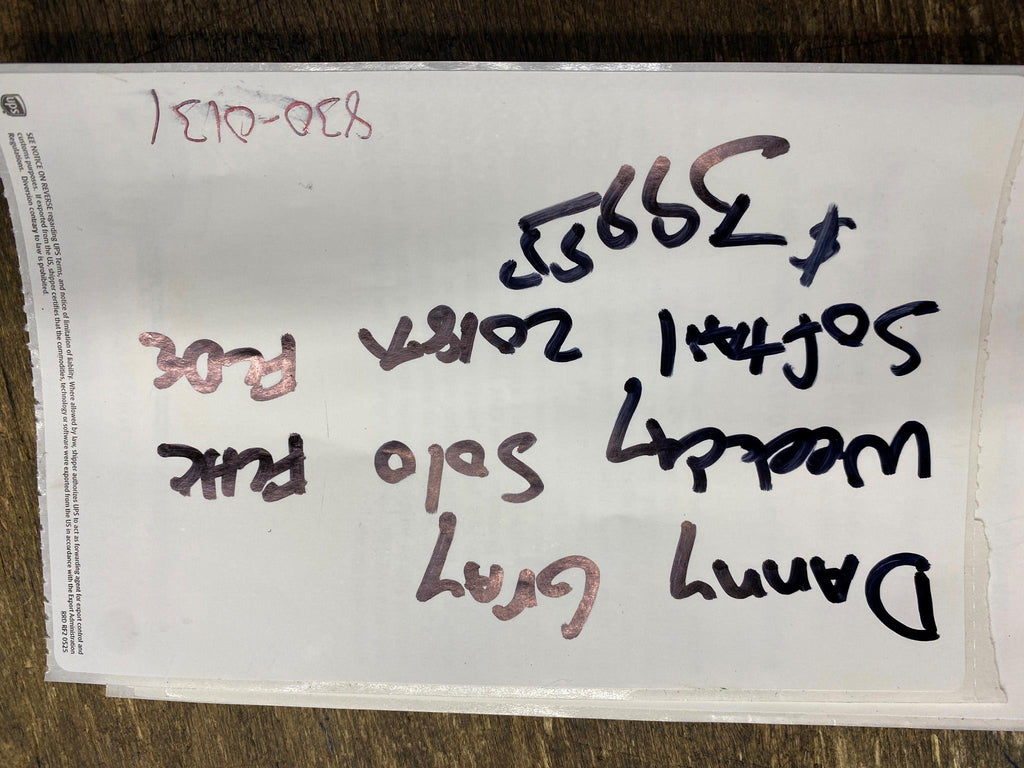 Danny Gray
Weekday Solo FLHC
Softail 2018^ FLDE
$399.95
830-0131
ups
SEE NOTICE ON REVERSE regarding UPS Terms, and notice of limitation of liability. Where allowed by law, shipper authorizes UPS to act as forwarding agent for export control and
customs purposes. If exported from the US, shipper certifies that the commodities, technology or software were exported from the US in accordance with the Export Administration
Regulations. Diversion contrary to law is prohibited.
RRD RF2 0525